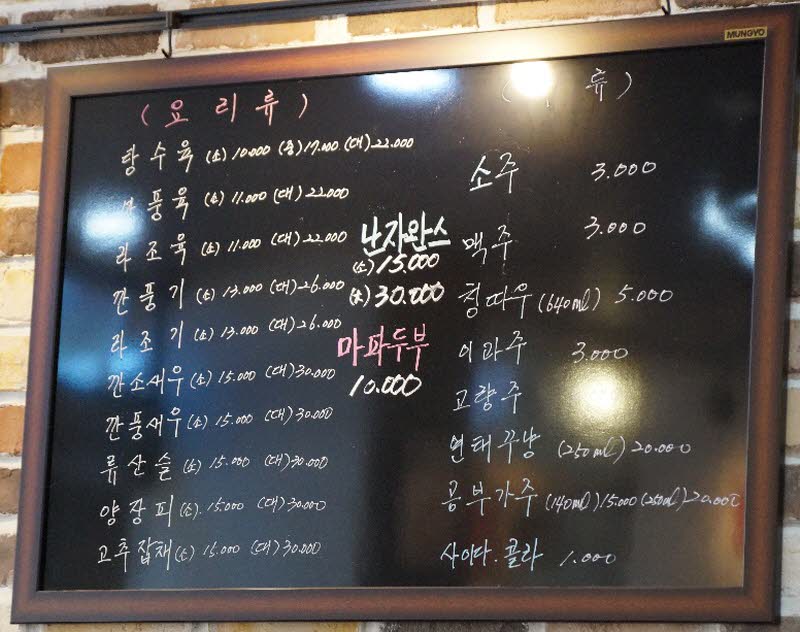 MUNGYO
( 요 리 류 )
탕 수 육 (소) 10.000 (중) 17.000 (대) 22.000
풍 육 (소) 11.000 (대) 22.000
라 조 육 (소) 11.000 (대) 22.000
깐 풍 기 (소) 13.000 (대) 26.000
라 조 기 (소) 13.000 (대) 26.000
깐소새우 (소) 15.000 (대) 30.000
깐풍새우 (소) 15.000 (대) 30.000
류 산 슬 (소) 15.000 (대) 30.000
양 장 피 (소) 15.000 (대) 30.000
고추잡채 (소) 15.000 (대) 30.000
난자완스
(소) 15.000
30.000
마파두부
10.000
( 류 )
소주 3.000
맥주 3.000
칭따우 (640ml) 5.000
이과주 3.000
고량주
연태꾸냥 (250ml) 20.000
공부가주 (140ml) 15.000 (250ml) 20.000
사이다. 콜라 1.000